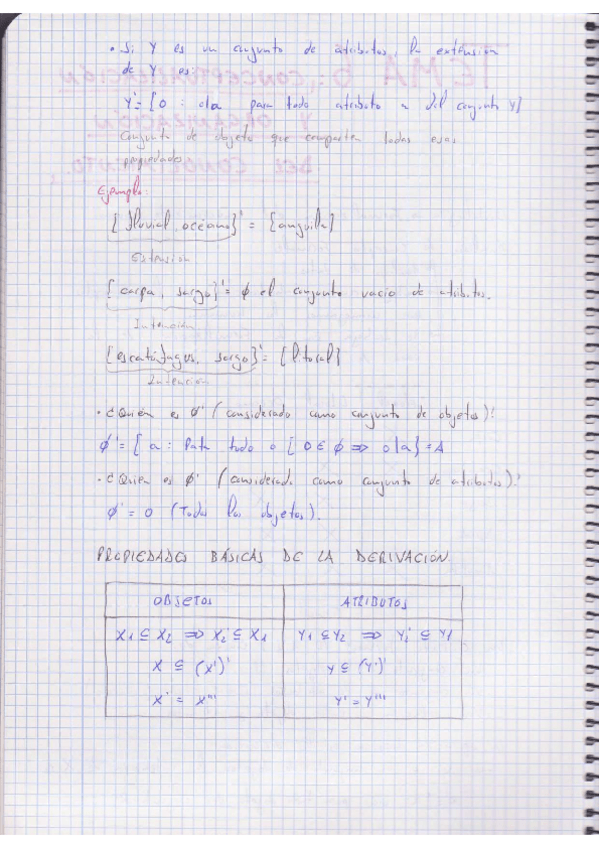 • Si Y es un conjunto de atributos, la extensión
de Y es:
Y' = { o : o I a para todo atributo a del conjunto Y}
Conjunto de objetos que comparten todas esas
propiedades
Ejemplo:
{ fluvial, océano}' = {anguila}
Extensión
{ carpa, sargo}' = ϕ el conjunto vacío de atributos.
Intención
{escatófagus, sargo}' = {litoral}
Intención
• ¿Quién es ϕ' (considerado como conjunto de objetos)?
ϕ' = { a : Para todo o [ o ∈ ϕ ⇒ o I a} = A
• ¿Quién es ϕ' (considerado como conjunto de atributos)?
ϕ' = O (Todos los objetos).
PROPIEDADES BÁSICAS DE LA DERIVACIÓN
OBJETOS ATRIBUTOS
X1 ⊆ X2 ⇒ X2' ⊆ X1 Y1 ⊆ Y2 ⇒ Y2' ⊆ Y1
X ⊆ (X')' Y ⊆ (Y')'
X' = X''' Y' = Y'''